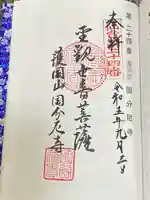 第二十四番 国分尼寺
奉拝
第二十四番
令和五年九月三日
聖觀世音菩薩
護国山国分尼寺